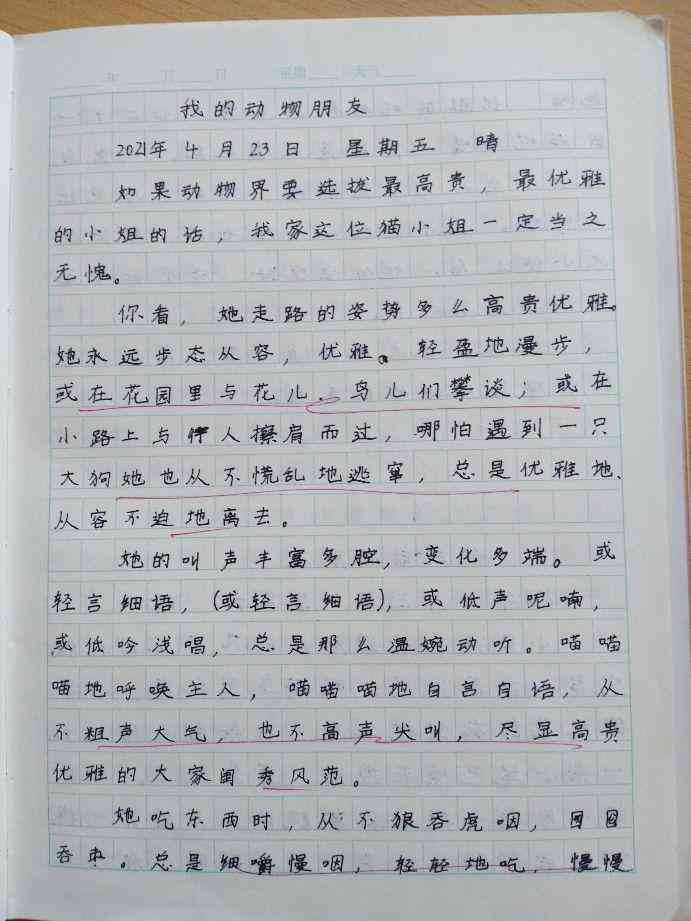 我的动物朋友
2021年4月23日 星期五 晴
如果动物界要选拔最高贵，最优雅
的小姐的话，我家这位猫小姐一定当之
无愧。
你看，她走路的姿势多么高贵优雅。
她永远步态从容，优雅。轻盈地漫步，
或在花园里与花儿、鸟儿们攀谈；或在
小路上与行人擦肩而过，哪怕遇到一只
大狗她也从不慌乱地逃窜，总是优雅地、
从容不迫地离去。
她的叫声丰富多腔，变化多端。或
轻言细语，(或轻言细语)，或低声呢喃，
或低吟浅唱，总是那么温婉动听。喵喵
喵地呼唤主人，喵喵喵地自言自语，从
不粗声大气，也不高声尖叫，尽显高贵
优雅的大家闺秀风范。
她吃东西时，从不狼吞虎咽，囫囵
吞枣。总是细嚼慢咽，轻轻地吃，慢慢